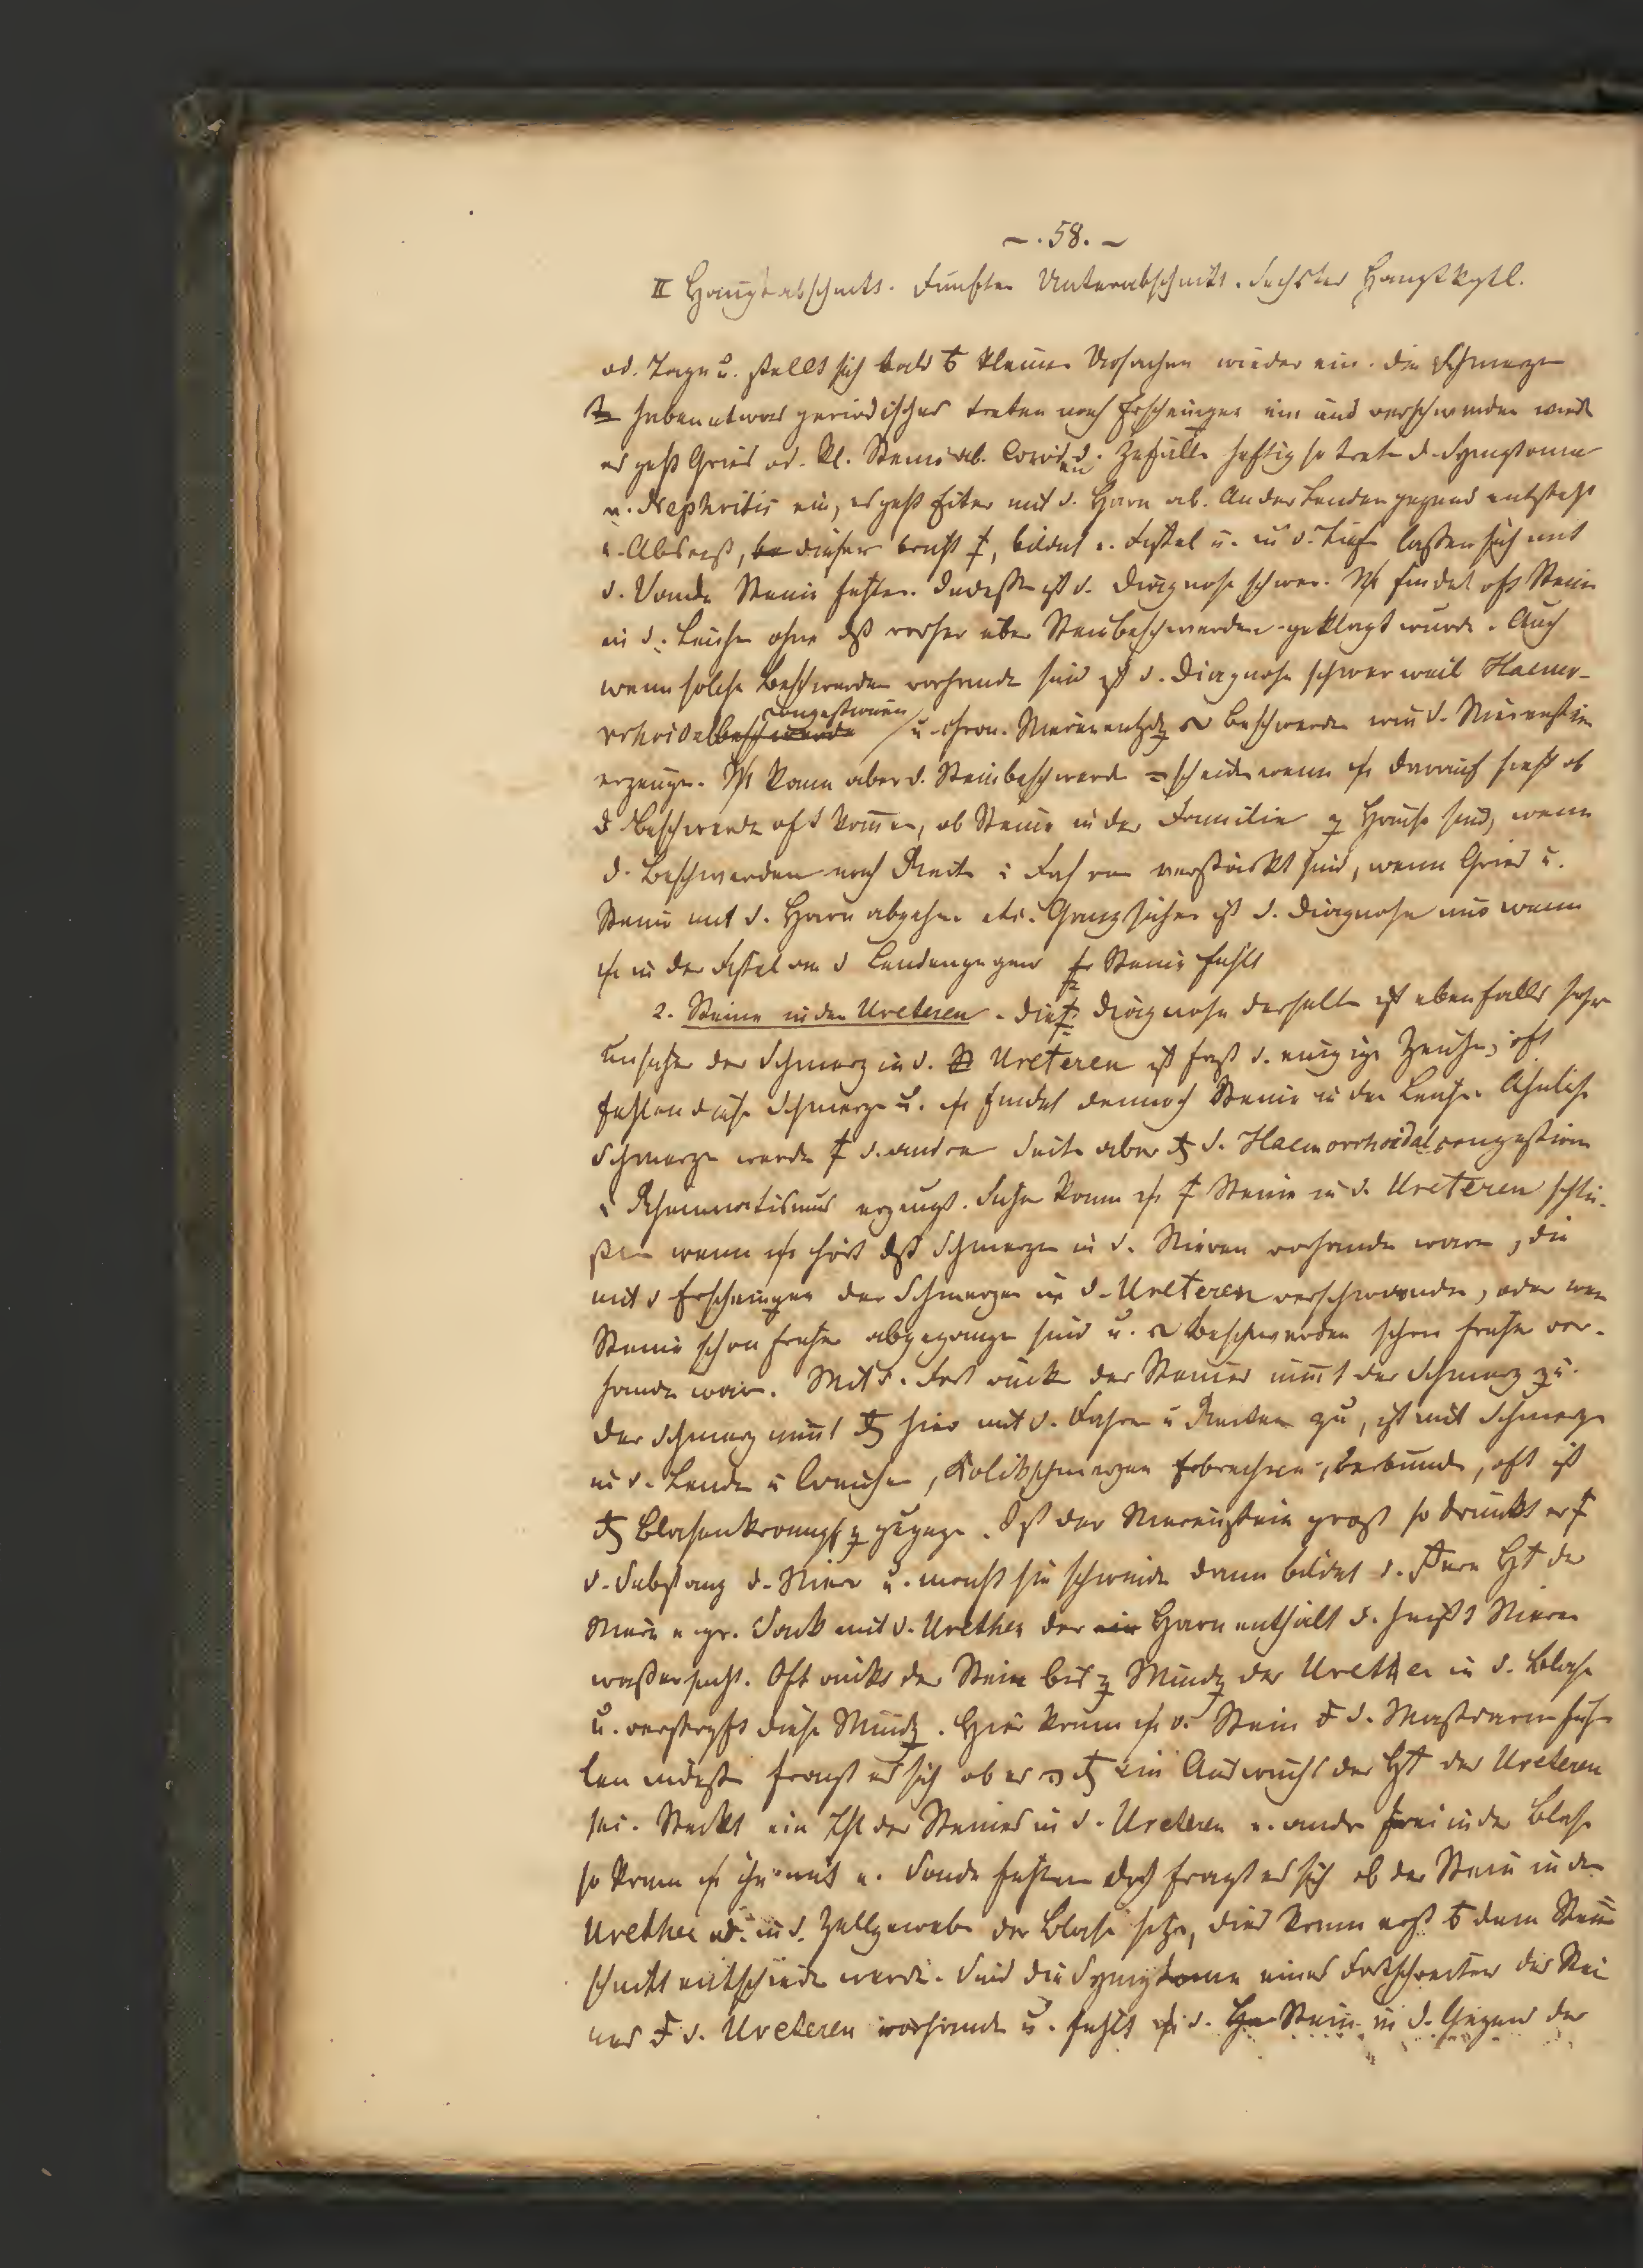 - . 58. -
II Hauptabschnitt. Fünfter Unterabschnitt. Sechster Hauptkptl.
od. Tage u. stellt sich bald kleine Ursachen wieder ein. die Schmerzen
haben etwas periodisches treten nach Erscheinungen ein und verschwinden wied
es geht Gries od. kl. Steine ab. Zufälle heftig so treten d. Symptome
v. Nephritis ein, es geht Eiter mit d. Harn ab. An der Lendengegend entsteht
e. Absceß, dieser bricht, bildet e. Fistel u. in d. Tiefe laßen sich mit
d. Sonde Steine fühlen. Indeßen ist d. Diagnose schwer. findet oft Steine
in d. Leichen ohne dß vorher über Steinbeschwerden geklagt wurde. Auch
wenn solche Beschwerden vorhanden sind ist d. Diagnose schwer weil Haemor-
rhoidal congestionen u. chron. Nierenentzdg Beschwerden wie d. Nierensteine
erzeugen. kann aber d. Steinbeschwerden scheiden wenn darauf sieht ob
d Beschwerden oft kom̄en, ob Steine in der Familie zu Hause sind, wenn
d. Beschwerden nach Reiten u Fahren verstärkt sind, wenn Gries u.
Steine mit d. Harn abgehen etc. Ganz sicher ist d. Diagnose nur wenn
in der Fistel an d Lendengegend Steine fühlt
2. Steine in den Ureteren. die Diagnose derselben ist ebenfalls sehr
unsicher der Schmerz in d. Ureteren ist fast d. einzige Zeichen, oft
fehlen diese Schmerzen u. findet dennoch Steine in der Leiche. Ähnliche
Schmerzen werden d. andren Seite aber d. Haemorrhoidalcongestionen
u Rheumatismus erzeugt. Sicher kann Steine in d. Ureteren schlie-
ßen wenn hört dß Schmerzen in d. Nieren vorhanden waren, die
mit d Erscheinungen der Schmerzen in d. Ureteren verschwanden, oder wen
Steine schon früher abgegangen sind u. Beschwerden schon früher vor-
handen waren. Mit d. Fortrücken der Steines nim̄t der Schmerz zu.
Der Schmerz nim̄t hier mit d. Fahren u Reiten zu, ist mit Schmerzen
in d. Lenden u Weichen, Kolikschmerzen Erbrechen, verbunden, oft ist
Blasenkrampf zugegen. Ist der Nierenstein groß so drückt er
d. Substanz d. Niere u. macht sie schwinden dann bildet d. äußere Ht der
Niere e gr. Sack mit d. Urether der Harn enthält d. heißt Nieren
waßersucht. Oft rückt der Stein bis z Mündg der Urether in d. Blase
u. verstopft diese Mündg. Hier kann d. Stein d. Mastdarm füh-
len indeßen fragt es sich ob es ein Auswuchs der Ht der Ureteren
sei. Steckt ein Thl der Steines in d. Ureteren e. andr frei in der Blase
so kann ihn mit e. Sonde fühlen doch fragt es sich ob der Stein in dem
Urether od. in d. Zellgewebe der Blase sitze, dies kann erst dem Stein
schnitt entschieden werden. Sind die Symptome eines Fortschreiten des Stei
nes d. Ureteren vorhanden u. fühlt d. Stein in d. Gegend der